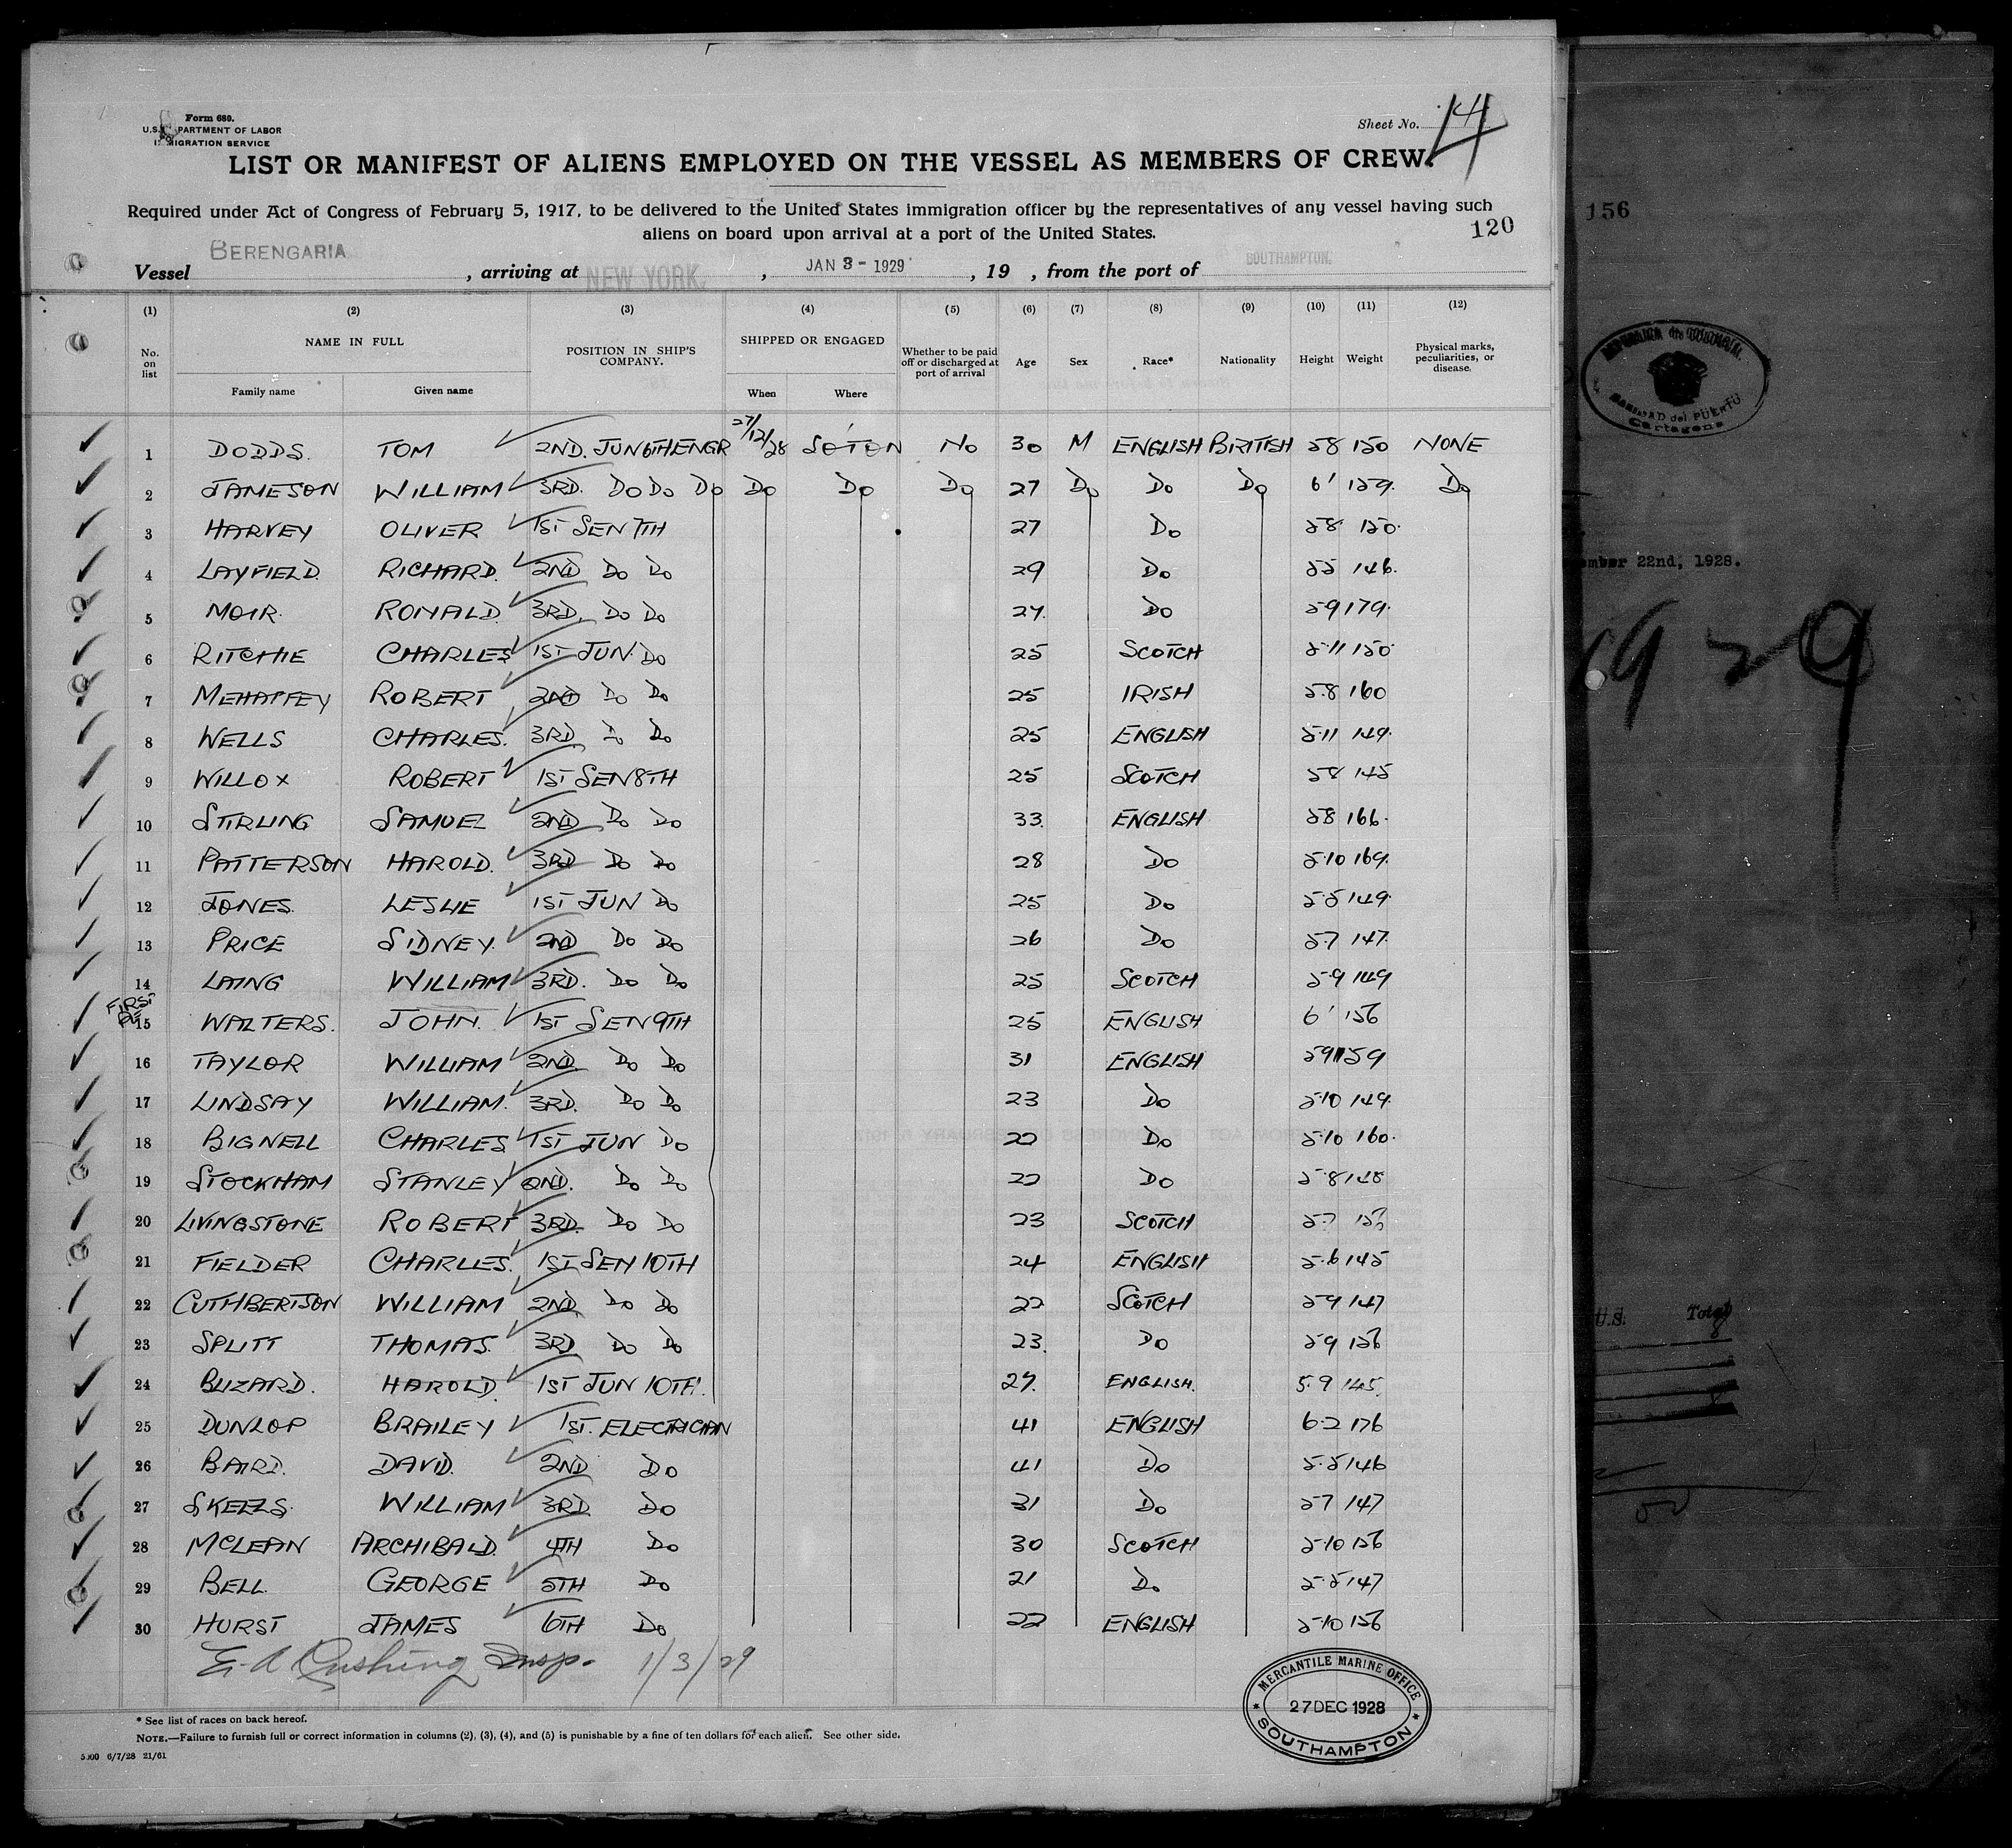 Form 680.
U.S. DEPARTMENT OF LABOR
IMMIGRATION SERVICE
Sheet No. 14
LIST OR MANIFEST OF ALIENS EMPLOYED ON THE VESSEL AS MEMBERS OF CREW.
Required under Act of Congress of February 5, 1917, to be delivered to the United States immigration officer by the representatives of any vessel having such
aliens on board upon arrival at a port of the United States.
120
156
Vessel BERENGARIA, arriving at NEW YORK, JAN 3 - 1929, 19 , from the port of SOUTHAMPTON.
(1) (2) (3) (4) (5) (6) (7) (8) (9) (10) (11) (12)
No. on list NAME IN FULL POSITION IN SHIP'S COMPANY. SHIPPED OR ENGAGED Whether to be paid off or discharged at port of arrival Age Sex Race* Nationality Height Weight Physical marks, peculiarities, or disease.
Family name Given name When Where
1 DODDS. TOM 2ND. JUN 6TH ENGR 27/12/28 SOTON No 30 M ENGLISH BRITISH 58 150 NONE
2 JAMESON WILLIAM 3RD. Do Do Do Do Do Do 27 Do Do Do 6' 159. Do
3 HARVEY OLIVER 1ST SEN 7TH 27 Do 58 150.
4 LAYFIELD. RICHARD. 2ND Do Do 29 Do 55 146.
5 MOIR. RONALD. 3RD. Do Do 27. Do 59 179.
6 RITCHIE CHARLES 1ST JUN. Do 25 SCOTCH 5.11 150.
7 MEHAFFEY ROBERT 2ND Do Do 25 IRISH 5.8 160
8 WELLS CHARLES. 3RD. Do Do 25 ENGLISH 5.11 149.
9 WILLOX ROBERT 1ST SEN 8TH 25 SCOTCH 58 145
10 STIRLING SAMUEL 2ND Do Do 33. ENGLISH 58 166.
11 PATTERSON HAROLD. 3RD Do Do 28 Do 5.10 169.
12 JONES. LESLIE 1ST JUN Do 25 Do 5.5 149.
13 PRICE SIDNEY. 2ND Do Do 26 Do 5.7 147.
14 LAING WILLIAM 3RD. Do Do 25 SCOTCH 5.9 149
FIRST
15 WALTERS. JOHN. 1ST SEN 9TH 25 ENGLISH 6' 156
16 TAYLOR WILLIAM 2ND. Do Do 31 ENGLISH 59 159
17 LINDSAY WILLIAM. 3RD. Do Do 23 Do 5.10 149.
18 BIGNELL CHARLES 1ST JUN Do 22 Do 5.10 160.
19 STOCKHAM STANLEY 2ND. Do Do 22 Do 5.8
20 LIVINGSTONE ROBERT 3RD. Do Do 23 SCOTCH 5.7
21 FIELDER CHARLES. 1ST SEN 10TH 24 ENGLISH 5.6 145
22 CUTHBERTSON WILLIAM 2ND Do Do 22 SCOTCH 59 147
23 SPLITT THOMAS. 3RD Do Do 23. Do 59 156
24 BLIZARD. HAROLD. 1ST JUN 10TH. 27. ENGLISH. 5.9 145.
25 DUNLOP BRAILEY 1ST. ELECTRICIAN 41 ENGLISH 6.2 176
26 BAIRD. DAVID. 2ND Do 41 Do 5.5 146
27 SKEELS. WILLIAM 3RD Do 31 Do 57 147
28 MCLEAN ARCHIBALD. 4TH Do 30 SCOTCH 5.10 156
29 BELL. GEORGE 5TH Do 21 Do 5.5 147
30 HURST JAMES 6TH Do 22 ENGLISH 5.10 156
E. A Cushing Insp. 1/3/29
MERCANTILE MARINE OFFICE
27 DEC 1928
SOUTHAMPTON
* See list of races on back hereof.
NOTE.—Failure to furnish full or correct information in columns (2), (3), (4), and (5) is punishable by a fine of ten dollars for each alien. See other side.
5000 6/7/28 21/61
SANIDAD del PUERTO
Cartagena
22nd, 1928.
1929
U.S. Total